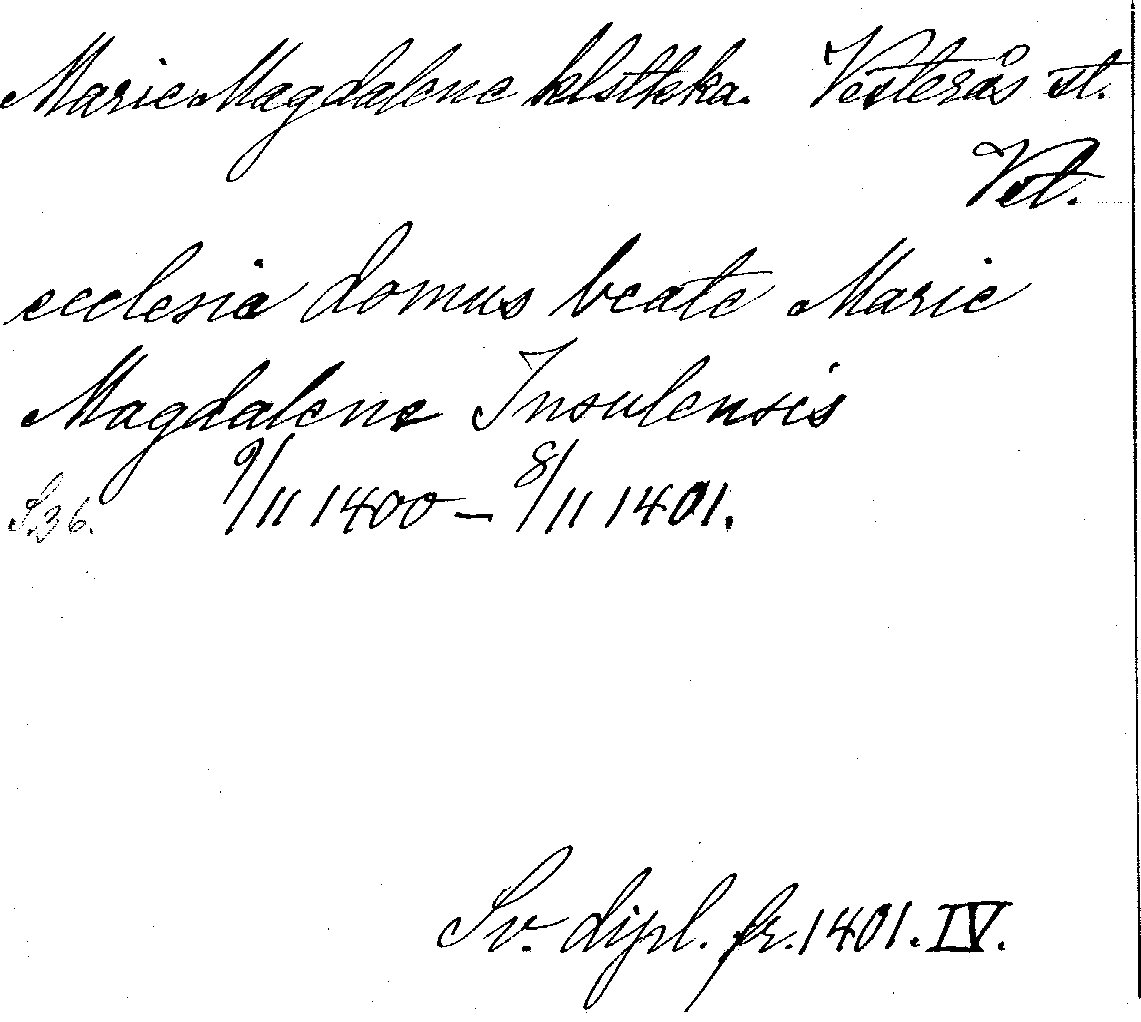 Marie Magdalene klstkska. Vesterås st.
Vstl.
ecclesia domus beate Marie
Magdalene Insulensis
S.36. 9/11 1400 – 8/11 1401.
Sv. dipl. fr. 1401. IV.